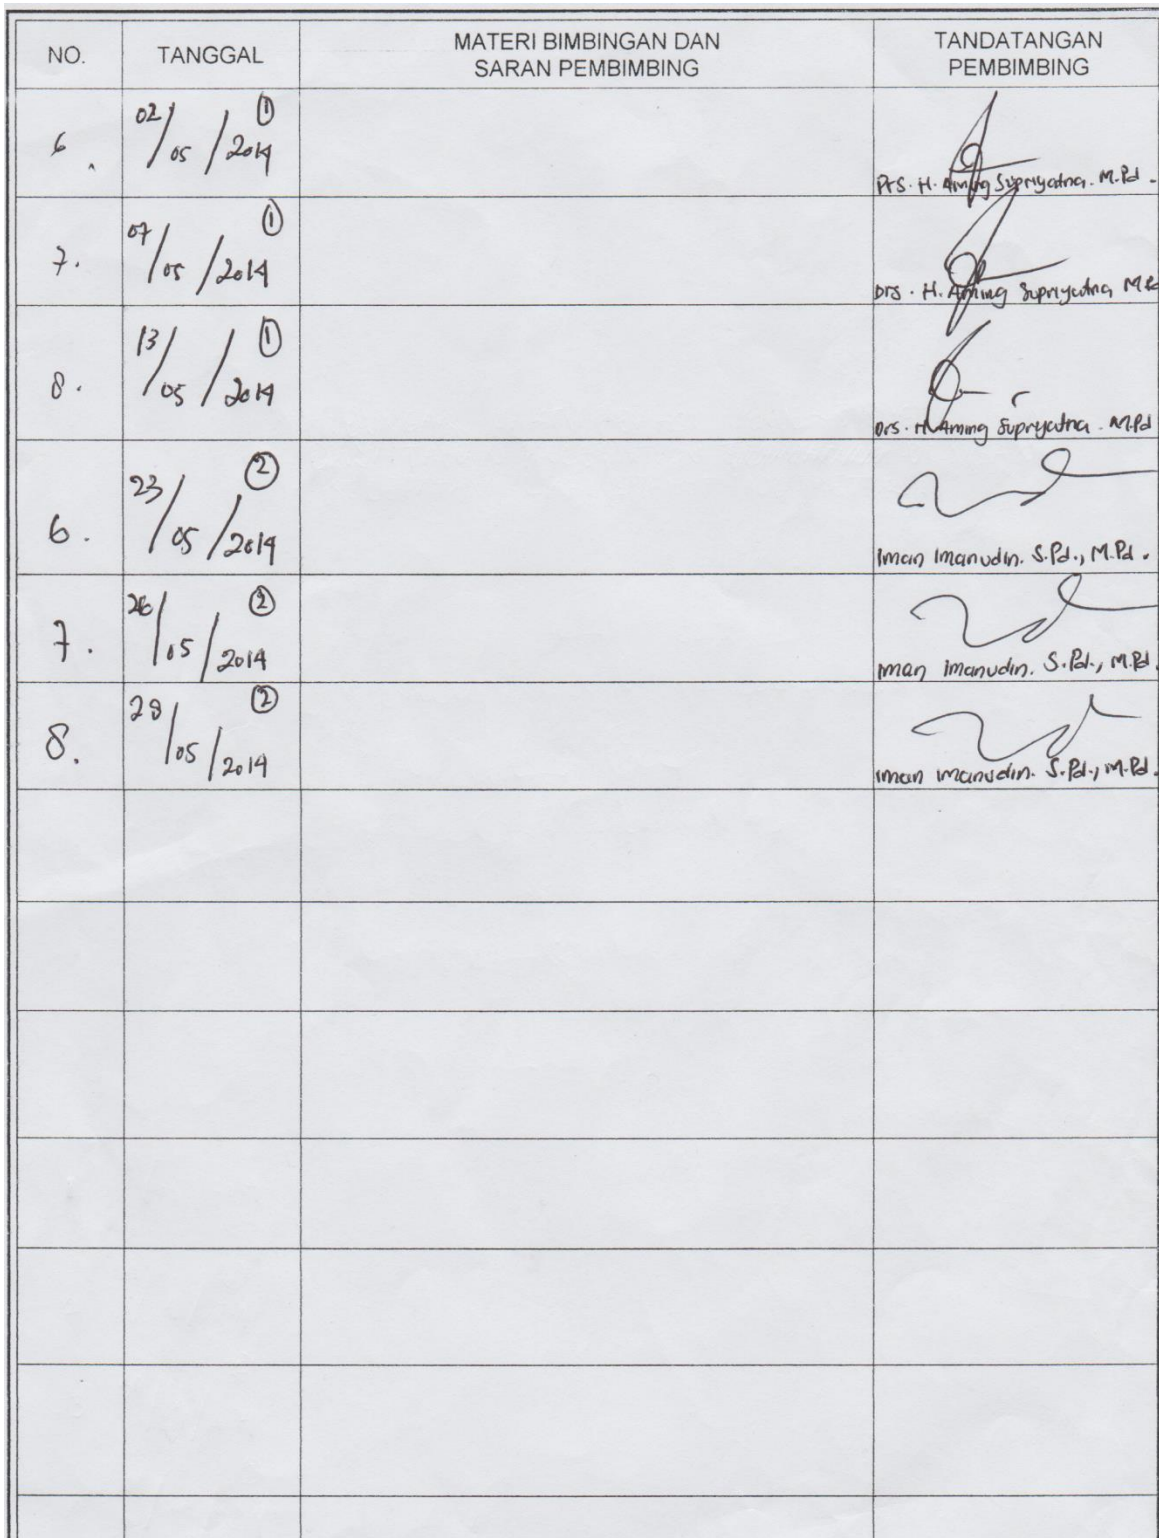 NO.
TANGGAL
MATERI BIMBINGAN DAN
SARAN PEMBIMBING
TANDATANGAN
PEMBIMBING
6.
02/05/2014 ①
Drs. H. Aming Supriyatna. M.Pd.
7.
07/05/2014 ①
Drs. H. Aming Supriyatna M.Pd
8.
13/05/2014 ①
Drs. H. Aming Supriyatna. M.Pd
6.
23/05/2014 ②
Iman Imanudin. S.Pd., M.Pd.
7.
26/05/2014 ②
Iman Imanudin. S.Pd., M.Pd.
8.
28/05/2014 ②
Iman Imanudin. S.Pd., M.Pd.